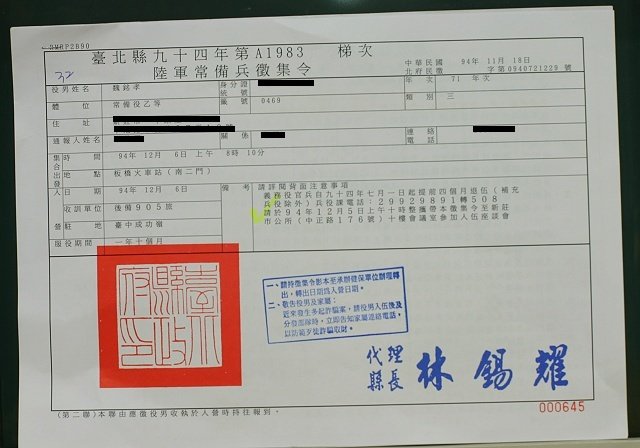 RMRP2B90
臺北縣九十四年第A1983 梯次
陸軍常備兵徵集令
中華民國 94年 11月 18日
北府民徵 字第0940721229 號
32
役男姓名 魏銘孝 身分證 統號 年次 71 年次
體位 常備役乙等 籤號 0469 類別 三
住址
通報人姓名 關係 連絡電話
集合出發 時間 94年 12月 6日 上午 8時 10分
地點 板橋火車站(南二門)
入營 日期 94年 12月 6日
收訓單位 後備905旅
駐地 臺中成功嶺
服役期間 一年十個月
備考
請詳閱背面注意事項
義務役官兵自九十四年七月一日起提前四個月退伍(補充
兵役除外)兵役課電話:29929891轉508
請於94年12月5日上午十時整攜帶本徵集令至新莊
市公所(中正路176號)十樓會議室參加入伍座談會
臺北縣政府印
一、請持徵集令影本至承辦健保單位辦理轉
出,轉出日期為入營日期。
二、敬告役男及家屬:
近來發生多起詐騙案,請役男入伍後及
分發部隊時,立即告知家屬連絡電話,
以防範歹徒詐騙取財。
代理
縣長 林錫耀
000645
(第二聯)本聯由應徵役男收執於入營時持往報到。